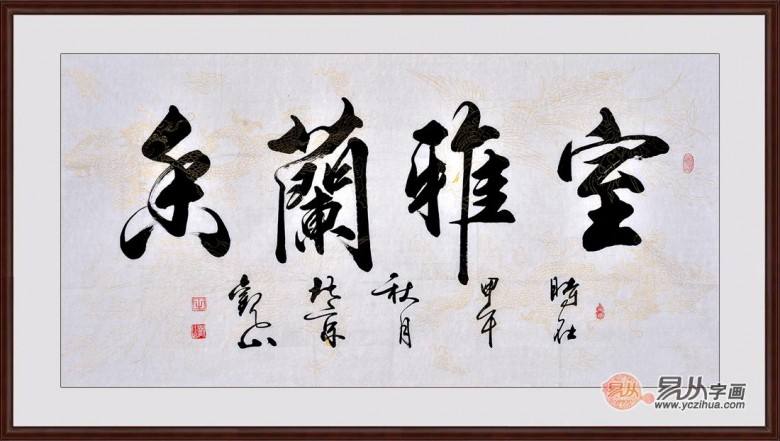 室雅蘭香
時在
甲午
秋月
於京
观山
易从字画
www.yczihua.com